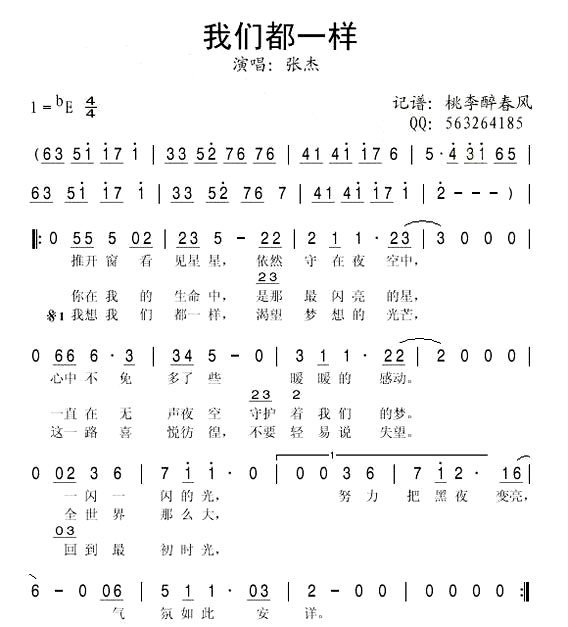 我们都一样
演唱：张杰
1=ᵇE 4/4
记谱：桃李醉春风
QQ：563264185
(63 51 17 1 | 33 52 76 76 | 41 41 17 6 | 5·4 31 65 |
63 51 17 1 | 33 52 76 7 | 41 41 17 1 | 2 - - - )
‖: 0 55 5 02 | 23 5 - 22 | 2 1 1·23 | 3 0 0 0 |
推开窗看见星星，依然守在夜空中，
23
你在我的生命中，是那最闪亮的星，
※1 我想我们都一样，渴望梦想的光芒，
0 66 6·3 | 34 5 - 0 | 3 1 1·22 | 2 0 0 0 |
心中不免多了些暖暖的感动。
23 2
一直在无声夜空守护着我们的梦。
这一路喜悦彷徨，不要轻易说失望。
1
0 02 3 6 | 7 1 1·0 | 0 0 3 6 | 7 1 2·16 |
一闪一闪的光，努力把黑夜变亮，
全世界那么大，
03
回到最初时光，
6 - 0 06 | 5 1 1·03 | 2 - 0 0 | 0 0 0 0 :‖
气氛如此安详。